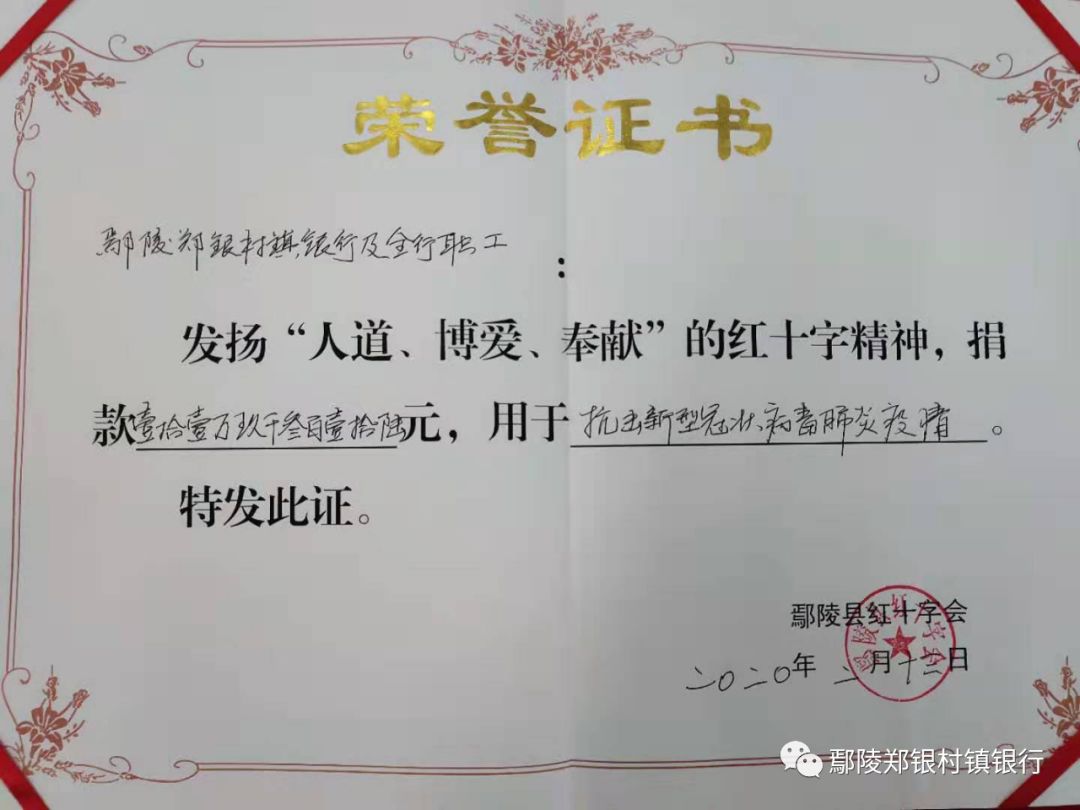 荣誉证书
鄢陵郑银村镇银行及全行职工
：
发扬“人道、博爱、奉献”的红十字精神，捐
款壹拾壹万玖千叁百壹拾陆元，用于抗击新型冠状病毒肺炎疫情。
特发此证。
鄢陵县红十字会
二〇二〇年二月十三日
鄢陵郑银村镇银行